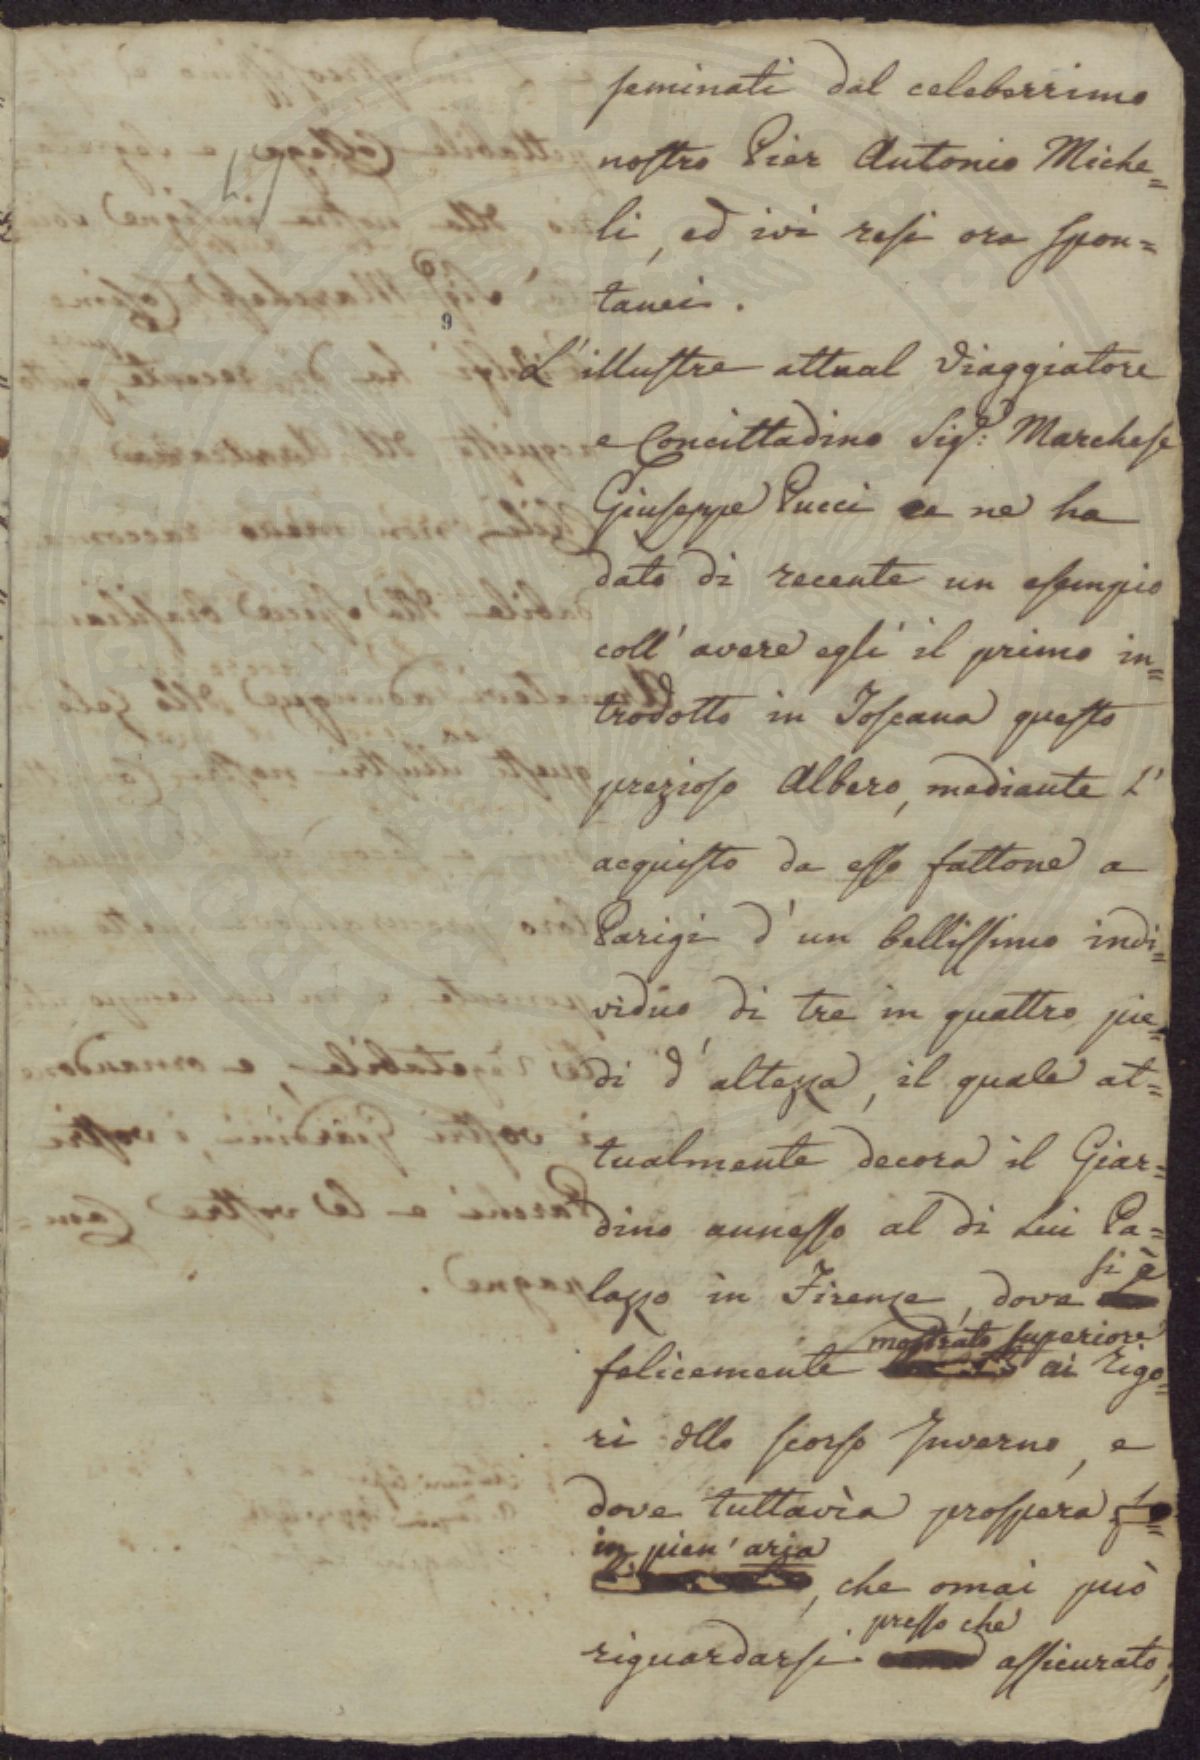 seminati dal celeberrimo
nostro Pier Antonio Miche=
li, ed ivi resi ora spon=
tanei.
9
L'illustre attual Viaggiatore
e Concittadino Sig.r: Marchese
Giuseppe Pucci ce ne ha
dato di recente un esempio
coll' avere egli il primo in=
trodotto in Toscana questo
prezioso Albero, mediante l'
acquisto da esso fattone a
Parigi d' un bellissimo indi=
viduo di tre in quattro pie=
di d' altezza, il quale at=
tualmente decora il Giar=
dino annesso al di Lui Pa=
si è
lazzo in Firenze, dove
mostrato superiore
felicemente ai rigo=
ri dllo scorso Inverno, e
dove tuttavia prospera
in pien' aria
, che omai può
presso che
riguardarsi assicurato;